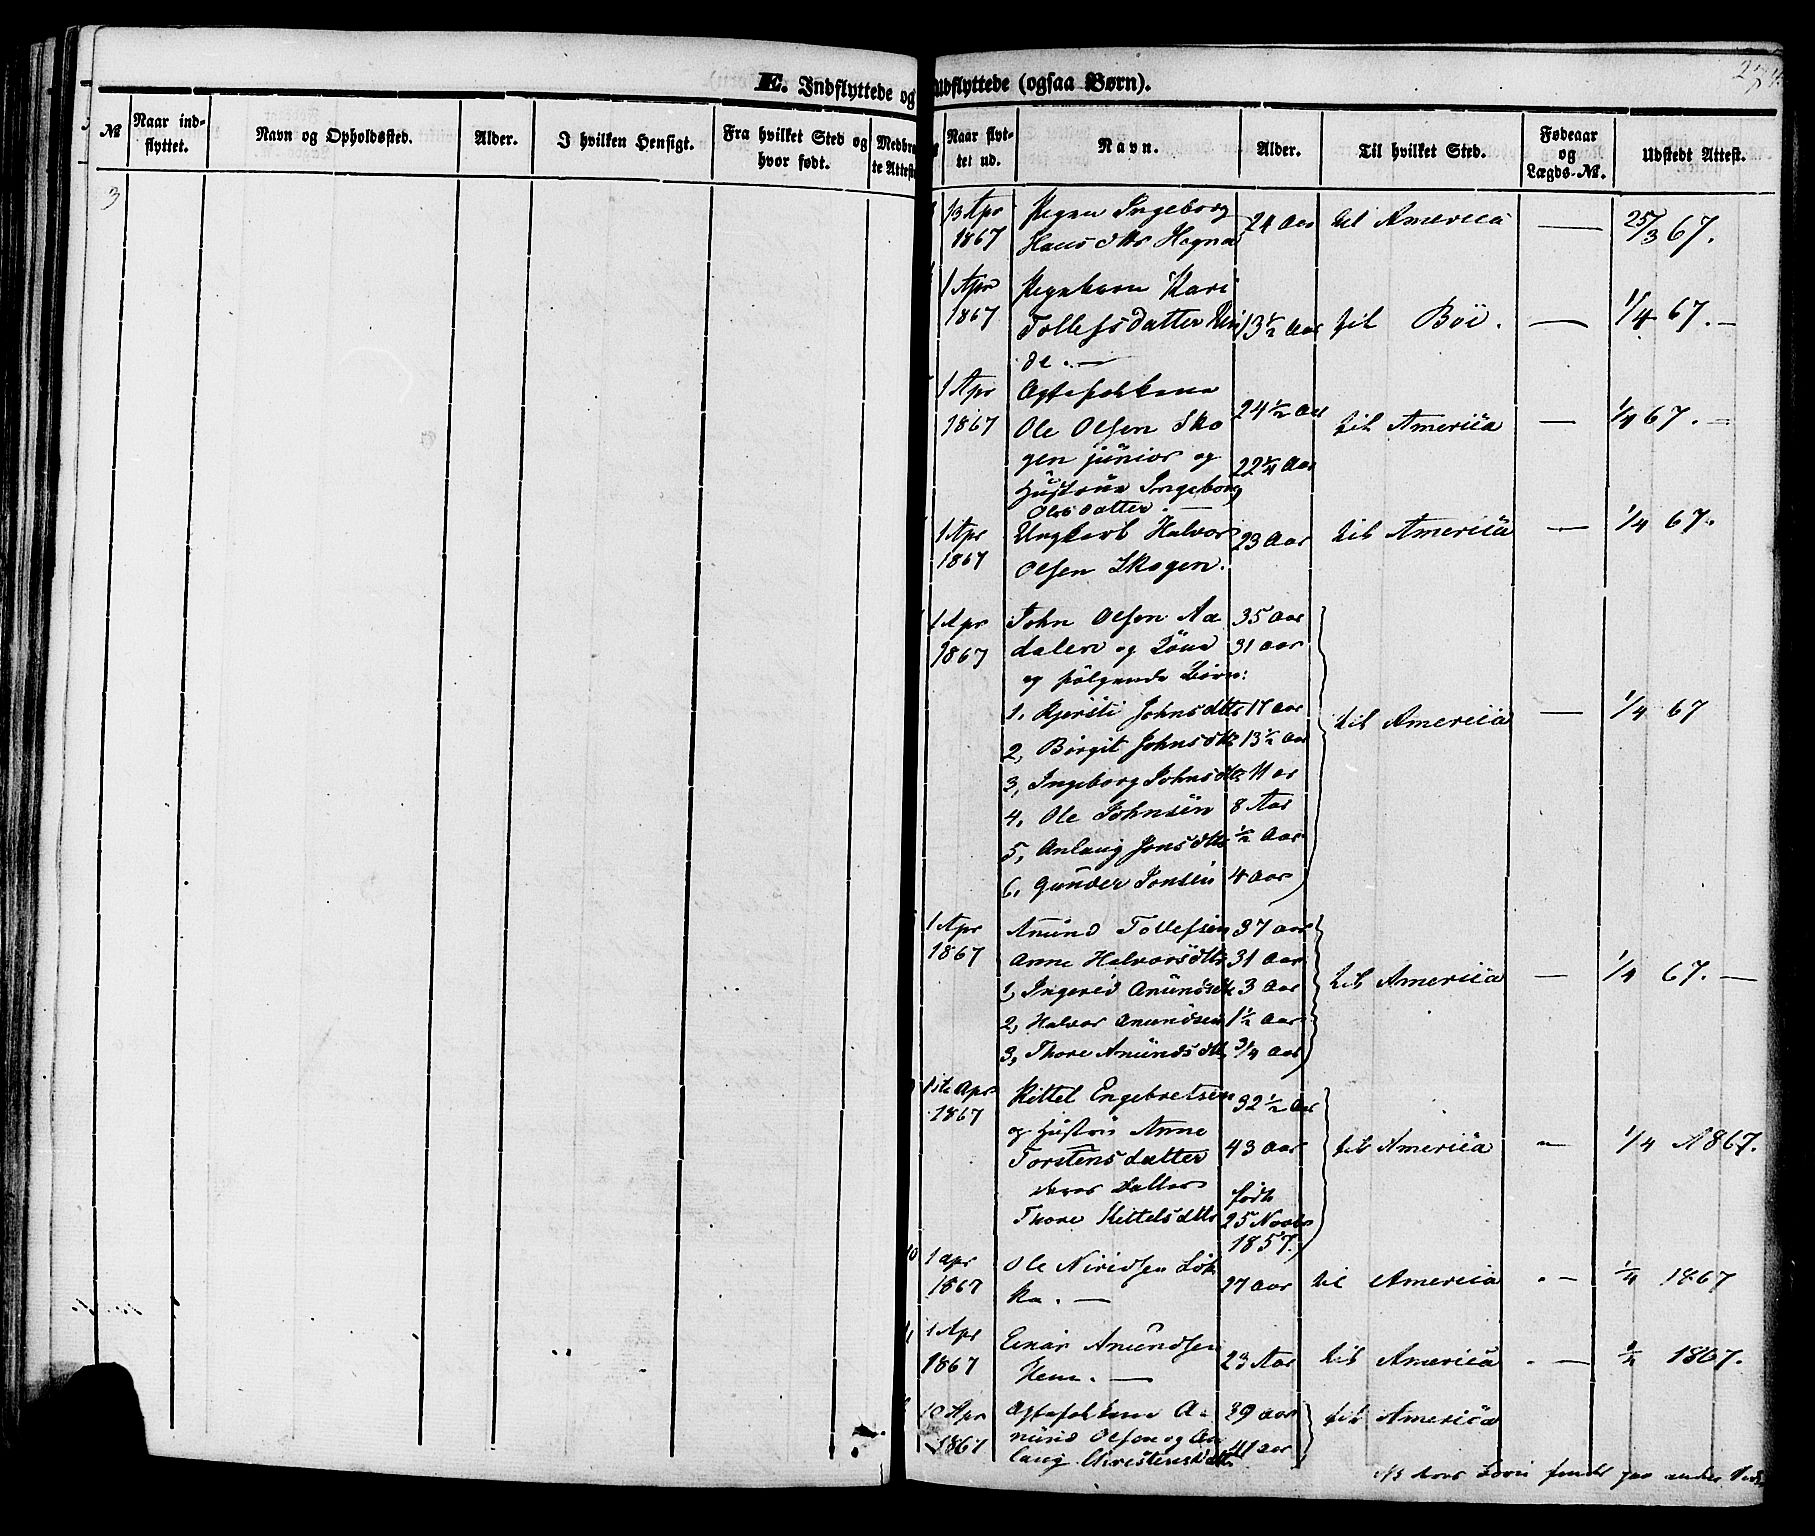 E. Indflyttede og Udflyttede (ogsaa Børn).
№
Naar ind-
flyttet.
Navn og Opholdssted.
Alder.
I hvilken Hensigt.
Fra hvilket Sted og
hvor født.
Medbra
te Attest
3
Naar flyt-
tet ud.
Navn.
Alder.
Til hvilket Sted.
Fødeaar
og
Lægds-№.
Udstedt Attest.
13 Apr
1867
Pigen Ingeborg
Hansdttr Hegna
24 Aar
til America
25/3 67.
1 Apr
1867
Pigebarn Kari
Tollefsdatter
de. —
13 ½ Aar
til Böe.
1/4 67. —
1 Apr
1867
Ægtefolkene
Ole Olsen Sko
gen junior og
Hustrue Ingeborg
Olesdatter. —
24 ½ Aar
22 ¼ Aar
til America
1/4 67. —
1 Apr
1867
Ungkarl Halvor
Olsen Skogen.
23 Aar
til America
1/4 67.
1 Apr
1867
John Olsen Aa
dalen og Kone
og følgende Börn:
1, Kjersti Johnsdttr 17 aar
2, Birgit Johnsdttr 13 ½ Aar
3, Ingeborg Johnsdttr 11 ar
4, Ole Johnsen 8 Aar
5, Anlaug Jonsdttr ½ Aar
6, Gunder Jonsen 4 Aar
35 Aar
31 aar
til America
1/4 67
1 Apr
1867
Anund Tollefsen 37 aar
Anne Halvorsdttr 31 Aar
1, Ingerid Anundsdtr 3 Aar
2, Halvor Anundsen 1 ½ Aar
3, Thore Anundsdttr 3/4 Aar
til America
1/4 67. —
1ste Apr
1867
Kittel Engebretsen
og Hustru Anne
Torstensdatter
deres Datter
Thore Kittelsdttr
32 ½ Aar
43 Aar
født
25 Novbr
1857.
til America
1/4 1867.
10
1 apr
1867
Ole
ka. —
27 aar
til America
1/4 1867
1 Apr
1867
Einar Amundsen
23 Aar
til America
1867.
10 Apr
1867
Ægtefolkene A-
nund Olsen og An
laug Christensdttr
39 aar
41 aar
til America
NB deres Börn findes paa anden Side